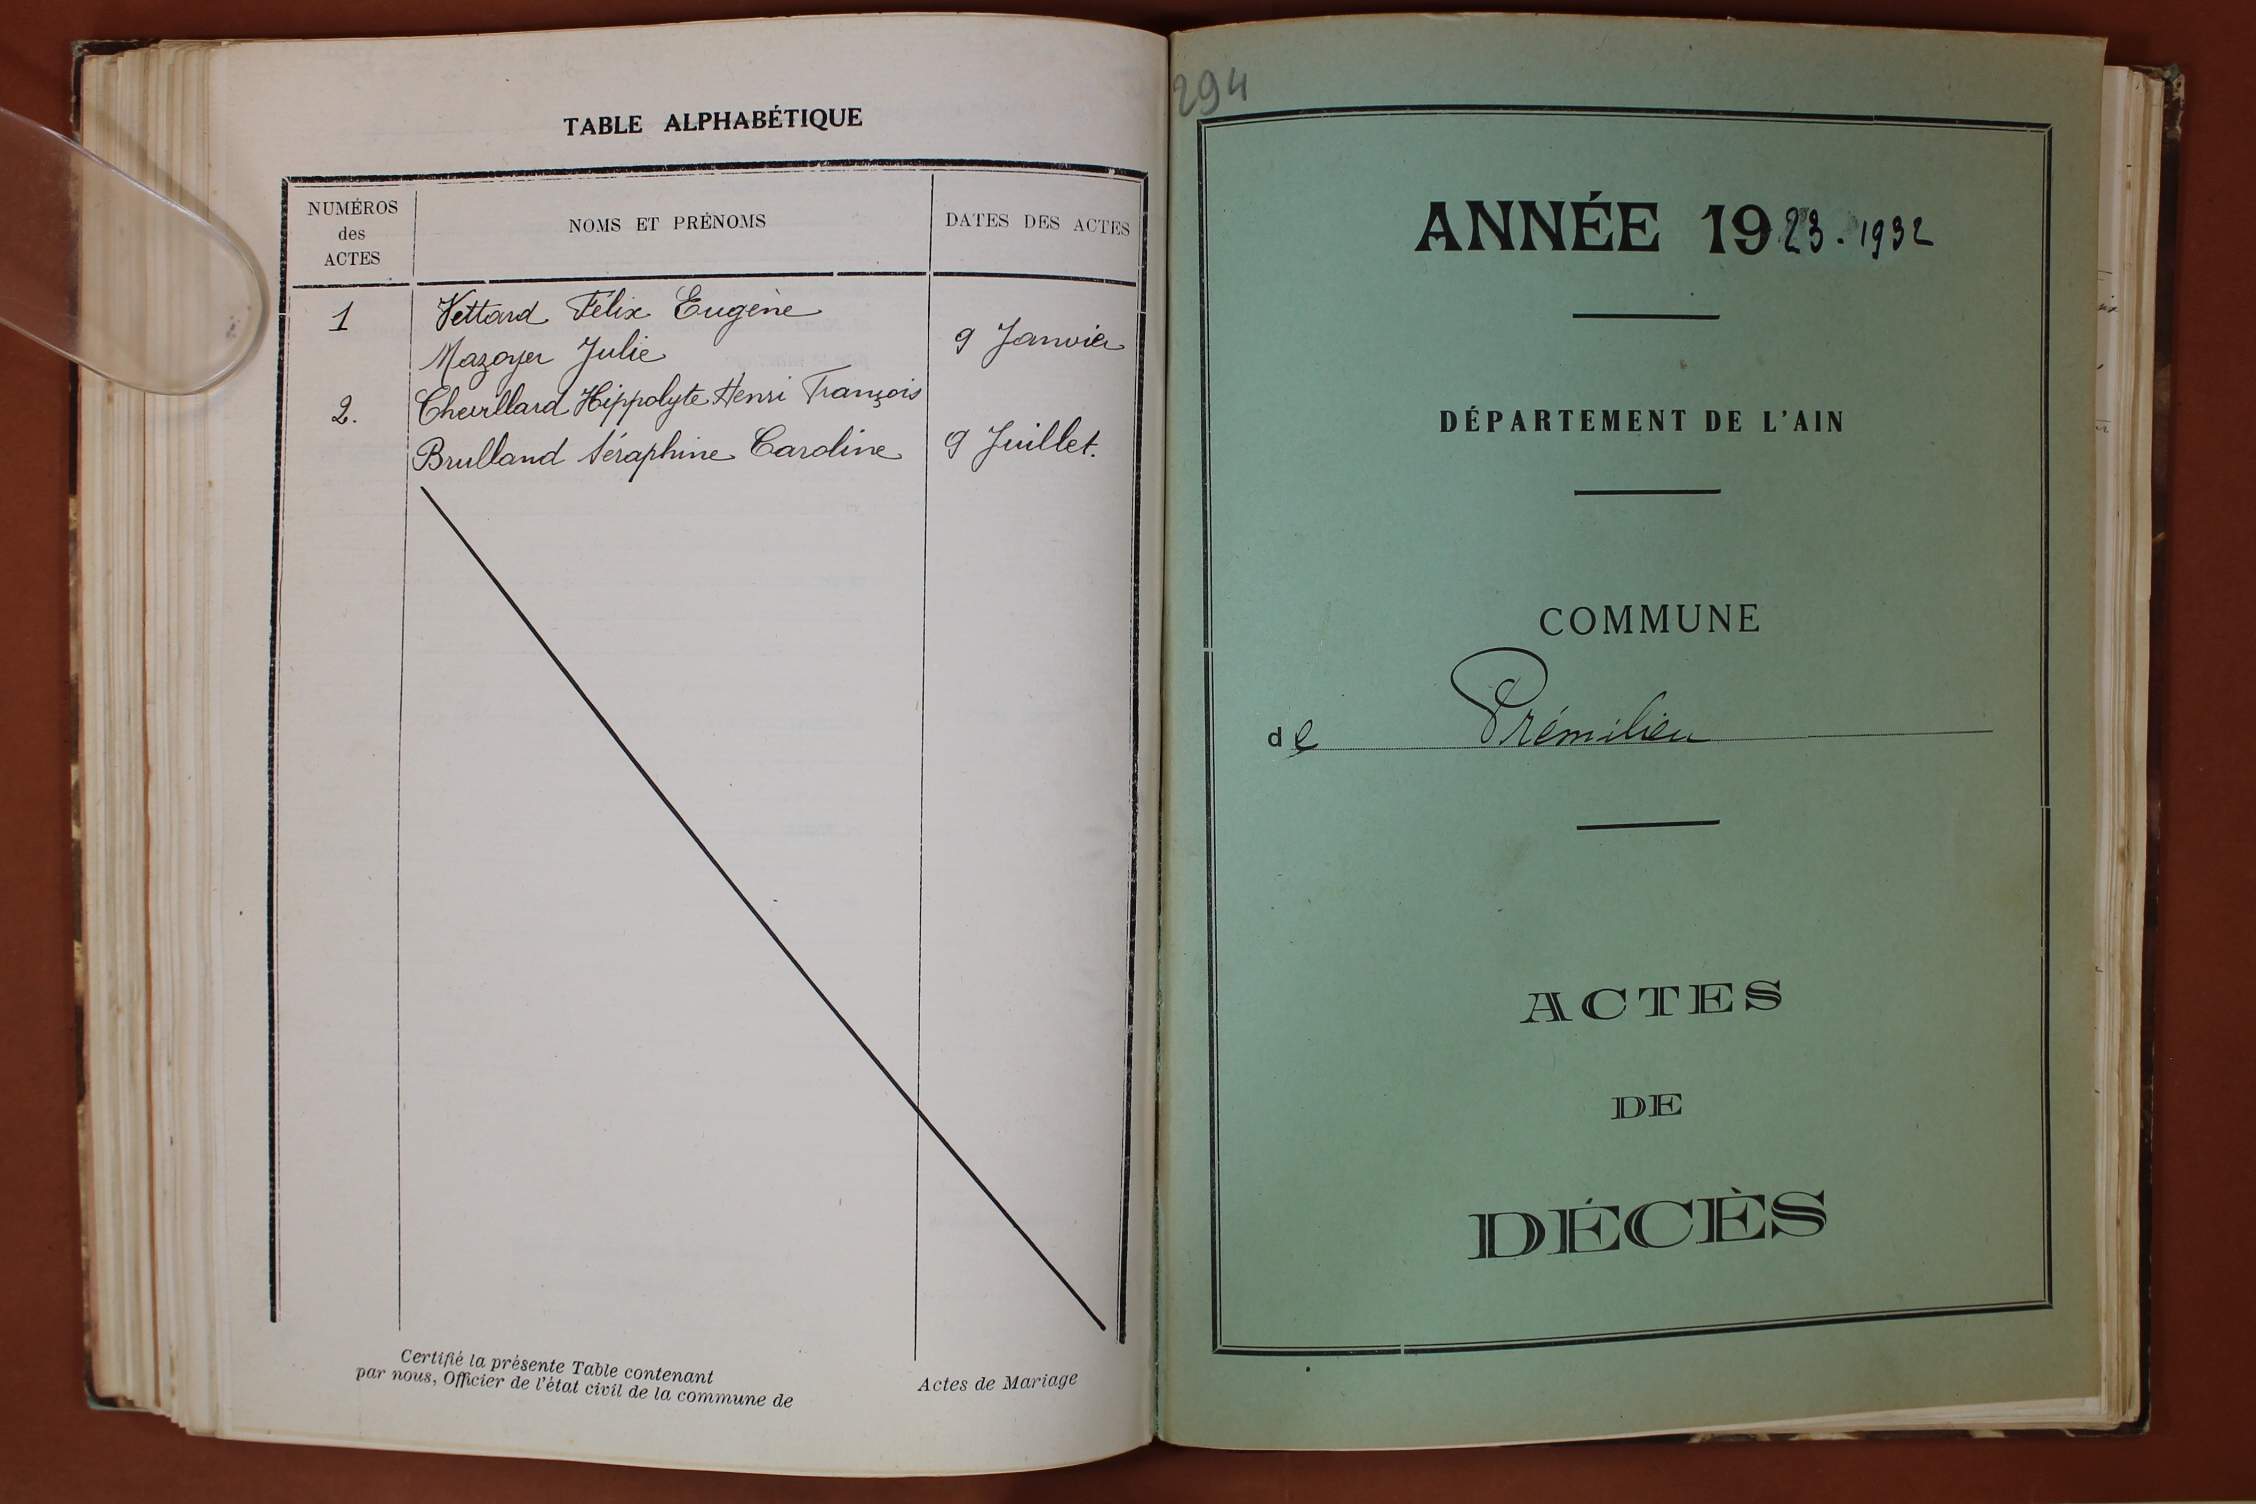 TABLE ALPHABÉTIQUE
NUMÉROS
des
ACTES
NOMS ET PRÉNOMS
DATES DES ACTES
1
Vettard Félix Eugène
Mazoyer Julie
9 Janvier
2.
Chevillard Hippolyte Henri François
Brulland Séraphine Caroline
9 Juillet.
Certifié la présente Table contenant
Actes de Mariage
par nous, Officier de l'état civil de la commune de
294
ANNÉE 1923. 1932
DÉPARTEMENT DE L'AIN
COMMUNE
de Prémilieu
ACTES
DE
DÉCÈS